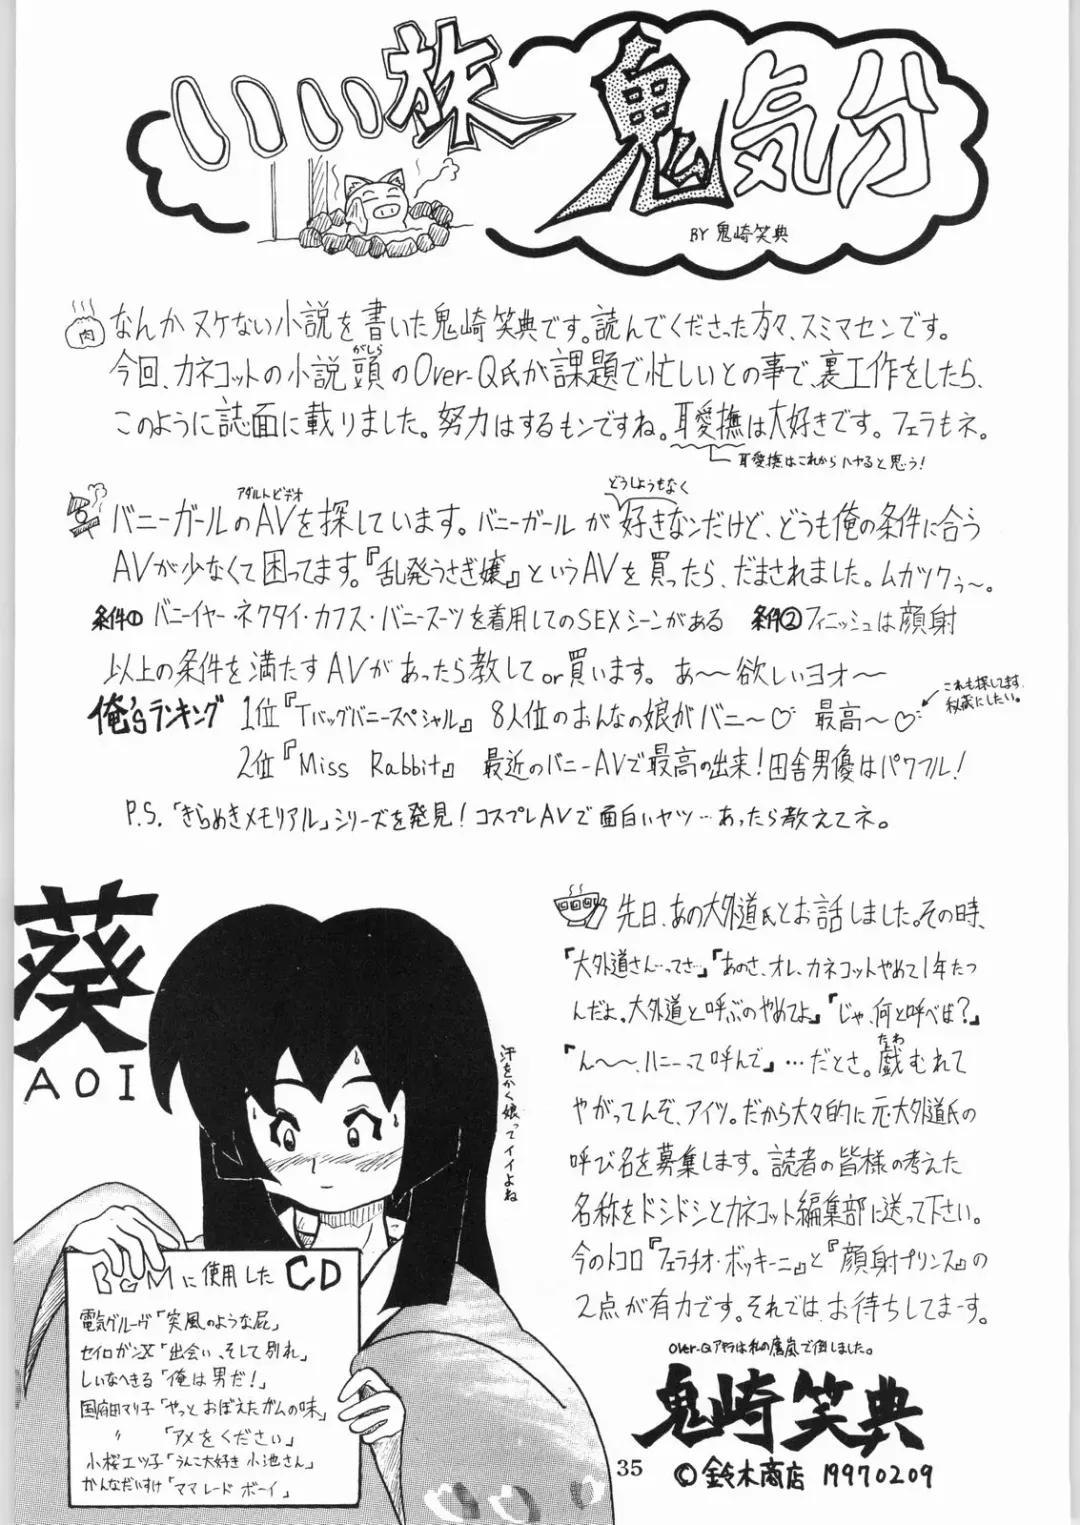 いい旅鬼気分
BY 鬼崎笑典
肉
なんかヌケない小説を書いた鬼崎笑典です。読んでくださった方々、スミマセンです。
今回、カネコットの小説頭(がしら)のOver-Q氏が課題で忙しいとの事で、裏工作をしたら、
このように誌面に載りました。努力はするモンですね。耳愛撫は大好きです。フェラもネ。
耳愛撫はこれからハヤると思う!
バニーガールのAV(アダルトビデオ)を探しています。バニーガールが好きなンだけど、どうも俺の条件に合う
どうしようもなく
AVが少なくて困ってます。『乱発うさぎ嬢』というAVを買ったら、だまされました。ムカツクぅ〜。
条件① バニーイヤー・ネクタイ・カフス・バニースーツを着用してのSEXシーンがある 条件② フィニッシュは顔射
以上の条件を満たすAVがあったら教してor買います。あ〜〜欲しいヨオ〜
俺'sランキング 1位『Tバッグバニースペシャル』 8人位のおんなの娘がバニ〜♡ 最高〜♡
これも探してます。
秘蔵にしたい。
2位『Miss Rabbit』 最近のバニーAVで最高の出来!田舎男優はパワフル!
P.S.「きらめきメモリアル」シリーズを発見!コスプレAVで面白いヤツ…あったら教えてネ。
葵
AOI
汗をかく娘ってイイよね
BGMに使用したCD
電気グルーヴ「笑風のような屁」
セイロガン区「出会い、そして別れ」
しいなへきる「俺は男だ!」
国府田マリ子「やっとおぼえたガムの味」
〃 「アメをください」
小桜エツ子「うんこ大好き小池さん」
かんなだいすけ「ママレードボーイ」
先日、あの大外道氏とお話しました。その時、
「大外道さん…ってさ…」「あのさ、オレ、カネコットやめて1年たつ
んだよ。大外道と呼ぶのやめてよ」「じゃ、何と呼べば?」
「ん〜〜、ハニーって呼んで」…だとさ。戯(たわ)むれて
やがってんぞ、アイツ。だから大々的に元・大外道氏の
呼び名を募集します。読者の皆様の考えた
名称をドシドシとカネコット編集部に送って下さい。
今のトコロ『フェラチオ・ボッキーニ』と『顔射プリンス』の
2点が有力です。それでは、お待ちしてまーす。
Over-Qアキラは私の唐嵐で倒しました。
鬼崎笑典
©鈴木商店 19970209
35